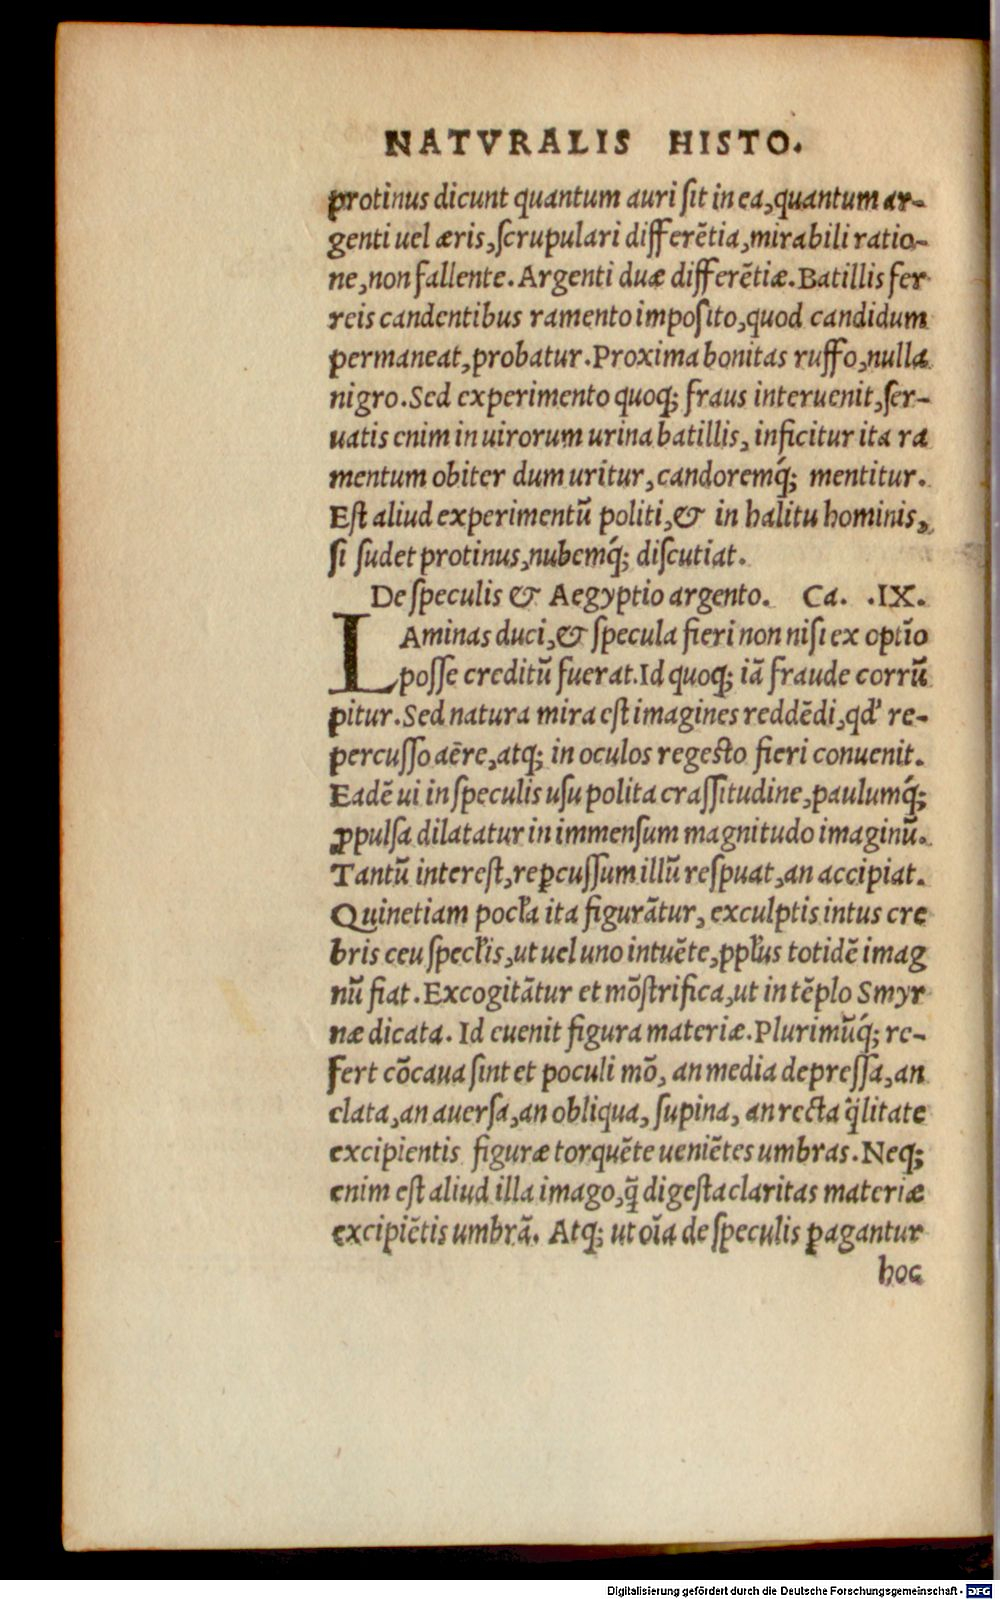 NATVRALIS HISTO.
protinus dicunt quantum auri ſit in ea, quantum ar-
genti uel æris, ſcrupulari differẽtia, mirabili ratio-
ne, non fallente. Argenti duæ differẽtiæ. Batillis fer
reis candentibus ramento impoſito, quod candidum
permaneat, probatur. Proxima bonitas ruffo, nulla
nigro. Sed experimento quoq; fraus interuenit, ſer-
uatis enim in uirorum urina batillis, inficitur ita ra
mentum obiter dum uritur, candoremq́; mentitur.
Eſt aliud experimentũ politi, & in halitu hominis,
ſi ſudet protinus, nubemq́; diſcutiat.
De ſpeculis & Aegyptio argento. Ca. .IX.
LAminas duci, & ſpecula fieri non niſi ex optĩo
poſſe creditũ fuerat. Id quoq; iã fraude corrũ
pitur. Sed natura mira eſt imagines reddẽdi, qd' re-
percuſſo aẽre, atq; in oculos regeſto fieri conuenit.
Eadẽ ui in ſpeculis uſu polita craſſitudine, paulumq́;
ꝓpulſa dilatatur in immenſum magnitudo imaginũ.
Tantũ intereſt, reꝑcuſſum illũ reſpuat, an accipiat.
Quinetiam pocła ita figurãtur, exculptis intus cre
bris ceu ſpecłis, ut uel uno intuẽte, ppłus totidẽ imag
nũ fiat. Excogitãtur et mõſtrifica, ut in tẽplo Smyr
næ dicata. Id euenit figura materiæ. Plurimũq́; re-
fert cõcaua ſint et poculi mõ, an media depreſſa, an
elata, an auerſa, an obliqua, ſupina, an recta q̃litate
excipientis figuræ torquẽte ueniẽtes umbras. Neq;
enim eſt aliud illa imago, q̃ digeſta claritas materiæ
excipiẽtis umbrã. Atq; ut oĩa de ſpeculis ꝑagantur
hoc
Digitalisierung gefördert durch die Deutsche Forschungsgemeinschaft - DFG